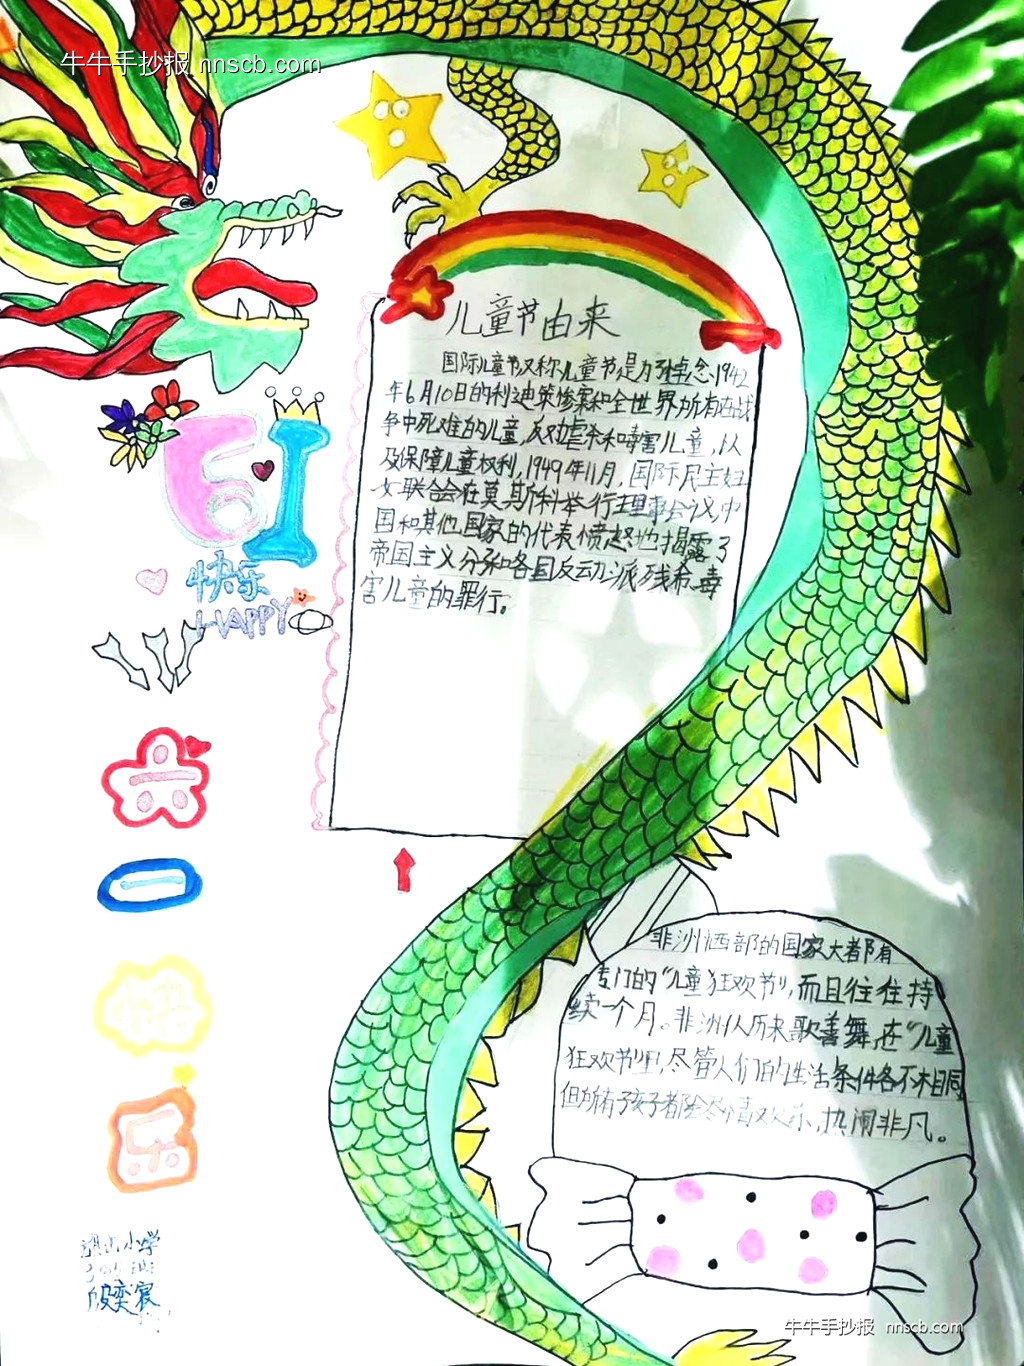 牛牛手抄报 nnscb.com
儿童节由来
国际儿童节又称儿童节,是为了悼念1942
年6月10日的利迪策惨案和全世界所有在战
争中死难的儿童,反对虐杀和毒害儿童,以
及保障儿童权利,1949年11月,国际民主妇
女联合会在莫斯科举行理事会议,中
国和其他国家的代表愤怒地揭露了
帝国主义分子和各国反动派残杀、毒
害儿童的罪行。
61
快乐
HAPPY
六
一
快
乐
非洲西部的国家大都有
专门的“儿童狂欢节”,而且往往持
续一个月。非洲人历来歌善舞,在“儿童
狂欢节”里,尽管人们的生活条件各不相同
但所有孩子都会尽情欢乐,热闹非凡。
小学
牛牛手抄报 nnscb.com